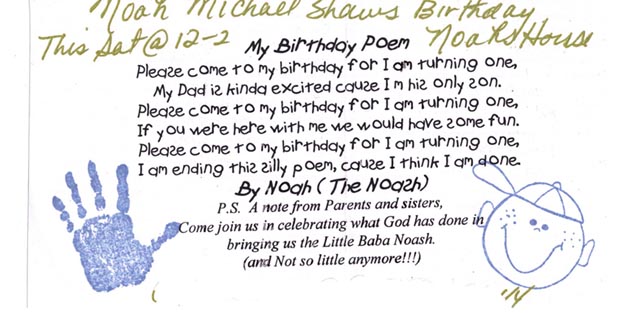 Noah Michael Shaws Birthday
This Sat @ 12-2
Noahs House
My Birthday Poem
Please come to my birthday for I am turning one,
My Dad is kinda excited cause I'm his only son.
Please come to my birthday for I am turning one,
If you were here with me we would have some fun.
Please come to my birthday for I am turning one,
I am ending this silly poem, cause I think I am done.
By Noah (The Noash)
P.S. A note from Parents and sisters,
Come join us in celebrating what God has done in
bringing us the Little Baba Noash.
(and Not so little anymore!!!)